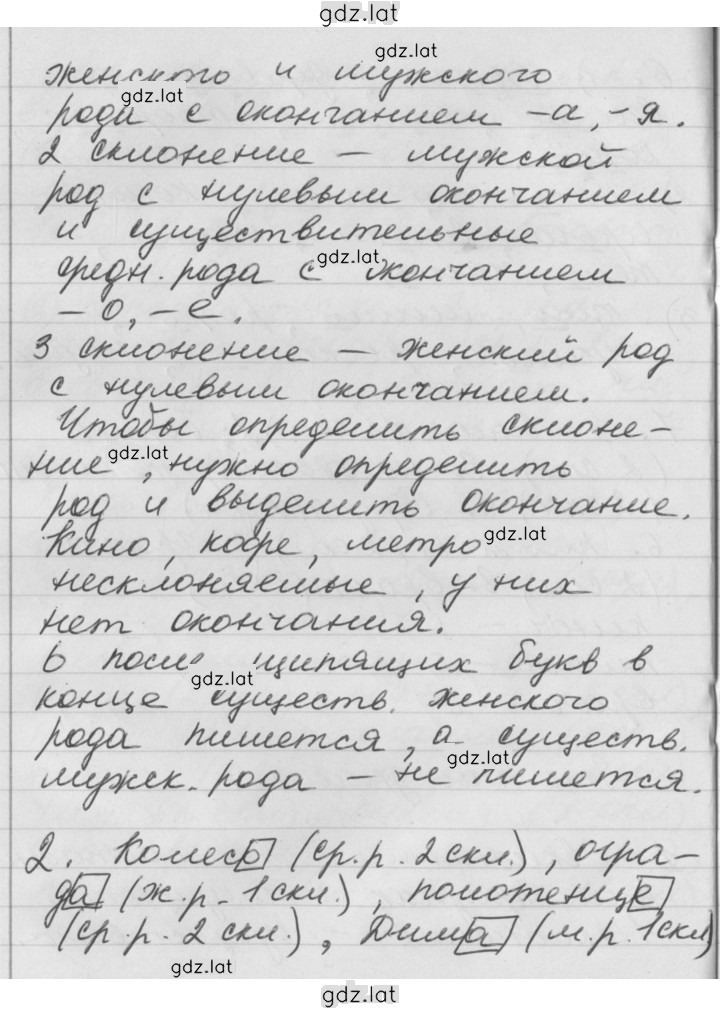 gdz.lat
gdz.lat
женского и мужского
gdz.lat
рода с окончанием -а, -я.
2 склонение – мужской
род с нулевым окончанием
и существительные
gdz.lat
средн. рода с окончанием
-о, -е.
3 склонение – женский род
с нулевым окончанием.
Чтобы определить склоне-
gdz.lat
ние, нужно определить
род и выделить окончание.
gdz.lat
Кино, кофе, метро
несклоняемые, у них
нет окончания.
ь после шипящих букв в
gdz.lat
конце существ. женского
рода пишется, а существ.
gdz.lat
мужск. рода – не пишется.
2. Колесо (ср.р. 2 скл.), огра-
да (ж.р. 1 скл.), полотенце
(ср.р. 2 скл.), Дима (м.р. 1скл)
gdz.lat
gdz.lat